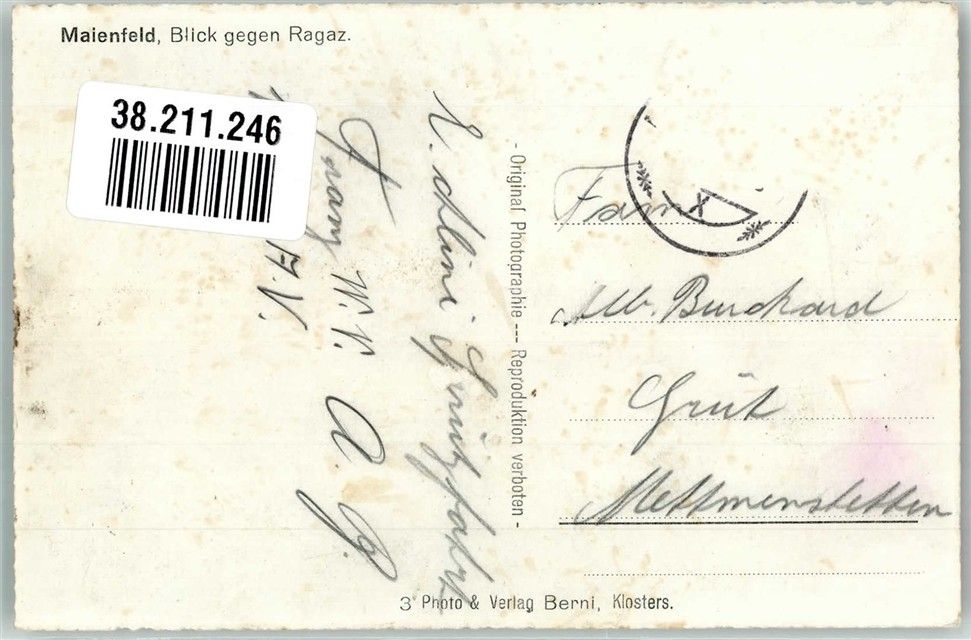 Maienfeld, Blick gegen Ragaz.
38.211.246
E. chlini
Franz W. V. A. G.
A. V.
- Original Photographie --- Reproduktion verboten -
Fam.
X
Alb. Burckard
Grüt
Mettmenstetten
3 Photo & Verlag Berni, Klosters.